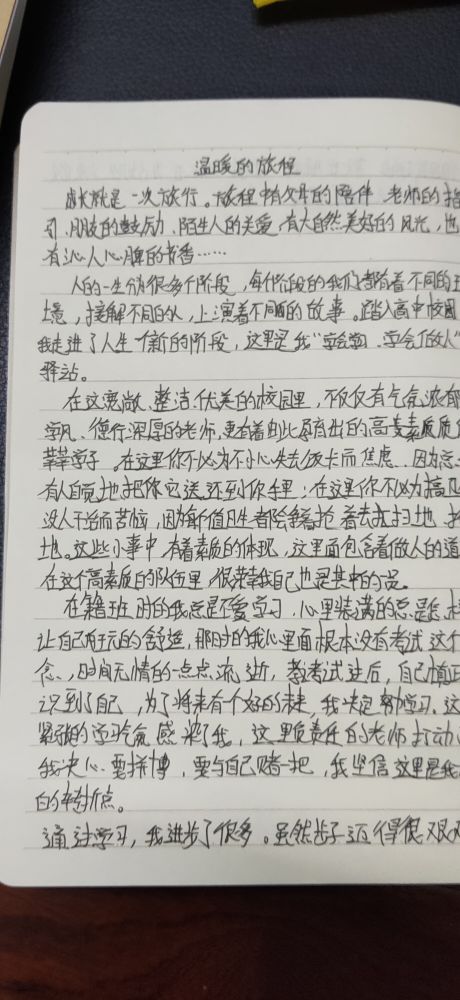 温暖的旅程
成长就是一次旅行。旅程中有父母的陪伴 老师的指
引、朋友的鼓励、陌生人的关爱、有大自然美好的风光，也
有沁人心脾的书香……
人的一生分很多个阶段，每个阶段的我们都有着不同的
境，接触不同的人，上演着不同的故事。踏入高中校园
我走进了人生个新的阶段，这里是我“学会学、学会做人”
驿站。
在这宽敞、整洁、优美的校园里，不仅仅有气氛浓郁
学风、德行深厚的老师，更有着由此孕育出的高素质
莘莘学子。在这里你不必为不小心失去饭卡而焦虑，因为
有人自觉地把你它送还到你手里；在这里你不必为搞卫
没人干活而苦恼，因为每个值日生者除争着抢着去扫地、拖
地。这些小事中，有着素质的体现，这里面包含着做人的道
在这个高素质的队伍里，很荣幸我自己也是其中的一员。
在籍班时的我总是不爱学习，心里装满的总是
让自己有玩的舒适，那时的我心里面根本没有考试这个
念，时间无情的一点点流逝，教考试过后，自己真正
识到了自己，为了将来有个好的未来，我决定努力学习、这
紧张的学习气氛感染了我，这里负责任的老师打动
我决心要拼博，要与自己赌一把，我坚信这里是我
的转折点。
通过学习，我进步了很多。虽然步子迈得很艰